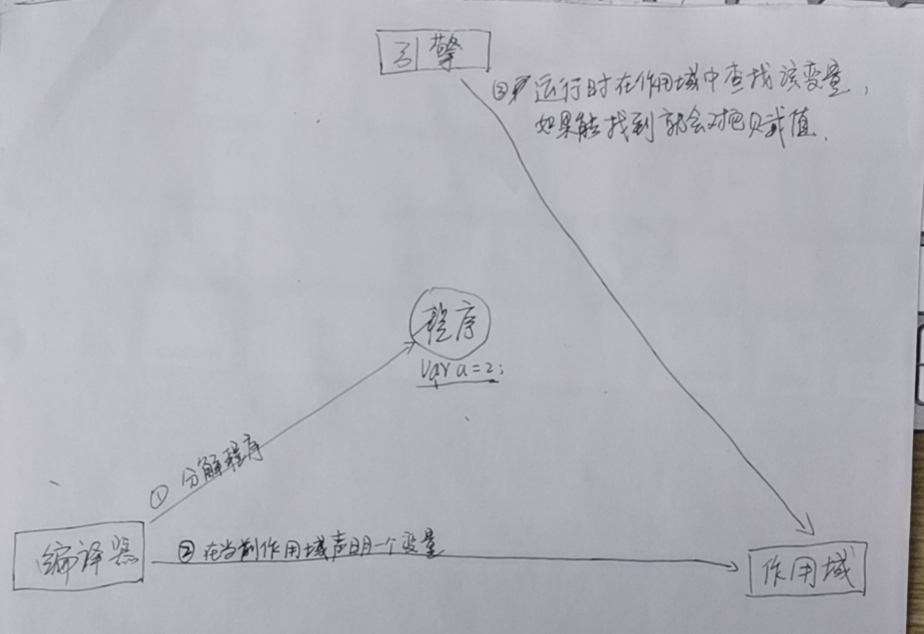 引擎
③ 运行时在作用域中查找该变量，
如果能找到就会对它赋值.
程序
var a=2;
① 分解程序
编译器
② 在当前作用域声明一个变量
作用域